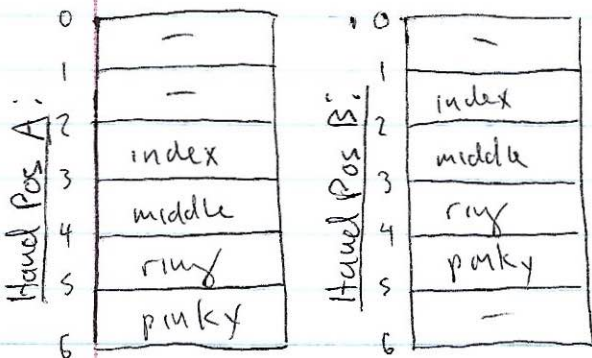 Hand Pos A:
0
—
1
—
2
index
3
middle
4
ring
5
pinky
6
Hand Pos B:
0
—
1
index
2
middle
3
ring
4
pinky
5
—
6